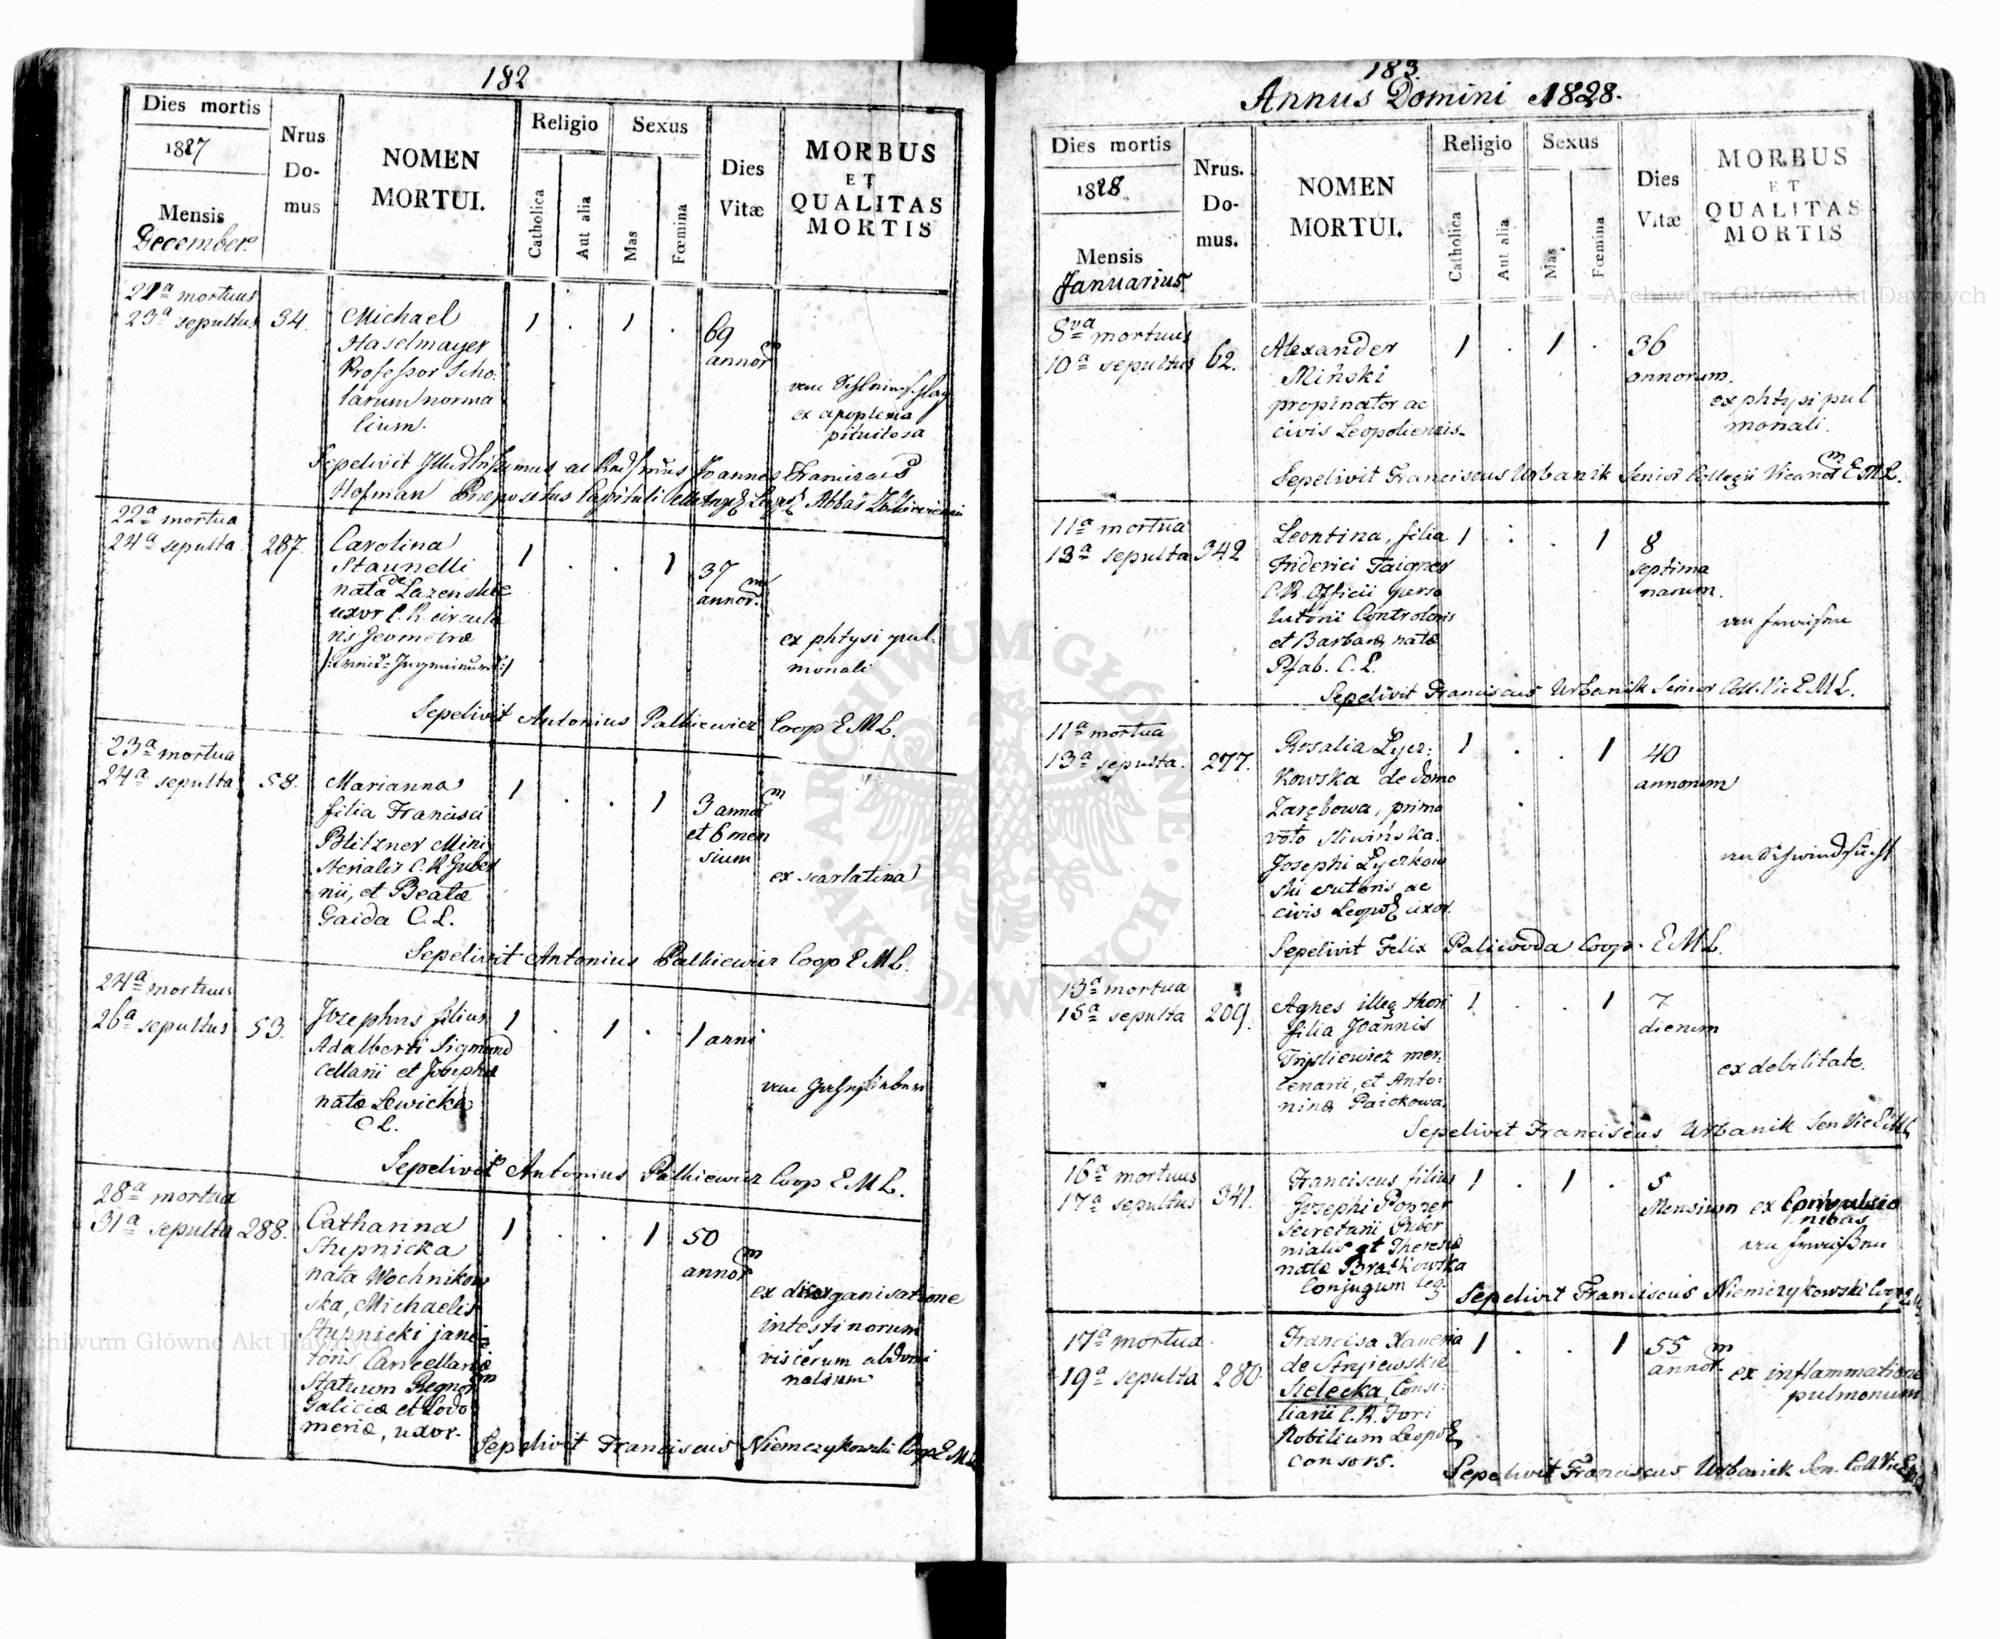 182
Dies mortis
1827
Mensis
December
Nrus
Do-
mus
NOMEN
MORTUI.
Religio
Catholica
Aut alia
Sexus
Mas
Fœmina
Dies
Vitæ
MORBUS
ET
QUALITAS
MORTIS
21ª mortuus
23ª sepultus 34. Michael 1 . 1 . 69
Haselmayer annor m
Professor Scho:
larum norma
lium.
ex apoplexia
pituitosa
Sepelivit Joannes
Hofman Præpositus Capituli Abbas
22ª mortua
24ª sepulta 287. Carolina 1 . . 1 37
Staunelli annor. m
nata de
uxor C. R. circula
ris Geometræ
ex phtysi pul-
monali
Sepelivit Antonius Palkiewicz Coop E M L.
23ª mortua
24ª sepulta 58. Marianna 1 . . 1 3 annor m
filia Francisci et 6 men
Blitzner Mini sium
sterialis C. R. Guber
nii, et Beatæ
Gaida C. L.
ex scarlatina
Sepelivit Antonius Palkiewicz Coop E M L.
24ª mortuus
26ª sepultus 53. Josephus filius 1 . 1 . 1 anni
Adalberti Sigmund
cellarii et Josephæ
natæ Lewicka
C L.
Sepelivit Antonius Palkiewicz Coop E M L.
28ª mortua
31ª sepulta 288. Catharina 1 . . 1 50
Stupnicka annor m
nata Wochnikow
ska, Michaelis
Stupnicki jani
toris Cancellariæ
Statuum Regnor m
Galiciæ et Lodo
meriæ, uxor.
ex disorganisatione
intestinorum
viscerum abdomi
nalium
Sepelivit Franciscus Niemczykowski Coop E M L
183.
Annus Domini 1828.
Dies mortis
1828.
Mensis
Januarius
Nrus.
Do-
mus.
NOMEN
MORTUI.
Religio
Catholica
Aut alia
Sexus
Mas
Fœmina
Dies
Vitæ
MORBUS
ET
QUALITAS
MORTIS
8va mortuus
10ª sepultus 62. Alexander 1 . 1 . 36
Miński annorum.
propinator ac
civis Leopoliensis.
ex phtysi pul
monali.
Sepelivit Franciscus Urbanik Senior Collegii Vicarior m E M L.
11ª mortua
13ª sepulta 342 Leontina, filia 1 : . 1 8
Friderici Taigner septima
C R Officii perso narum.
lutorii Controloris
et Barbaræ natæ
Pfab. C. L.
Sepelivit Franciscus Urbanik Senior Coll. Vic E M L.
11ª mortua
13ª sepulta. 277. Rosalia Łycz: 1 . . 1 40
kowska de domo annorum
Zarębowa, primo
voto Sliwińska.
Josephi Łyczkow
ski sutoris ac
civis Leopol uxor.
Sepelivit Felix Paliwoda Coop. E M L.
13ª mortua
15ª sepulta 209. Agnes illeg thori 1 . . 1 7
filia Joannis dierum
mer:
cenarii, et Anto:
ninæ
ex debilitate.
Sepelivit Franciscus Urbanik Sen Vic E M L
16ª mortuus
17ª sepultus 341. Franciscus filius 1 . 1 . 5
Josephi Popper Mensium
Secretarii Guber
nialis et Theresiæ
natæ Bratkowska
Conjugum leg.
ex Convulsio
nibus
Sepelivit Franciscus Niemczykowski Coop
17ª mortua.
19ª sepulta 280. Francisca Xaveria 1 . . 1 55
de annor. m
Sielecka, Consi:
liarii C. R. Fori
Nobilium Leopol
consors.
ex inflammatione
pulmonum
Sepelivit Franciscus Urbanik Sen. Coll Vic E M L
Archiwum Główne Akt Dawnych
Archiwum Główne Akt Dawnych
ARCHIWUM GŁÓWNE AKT DAWNYCH